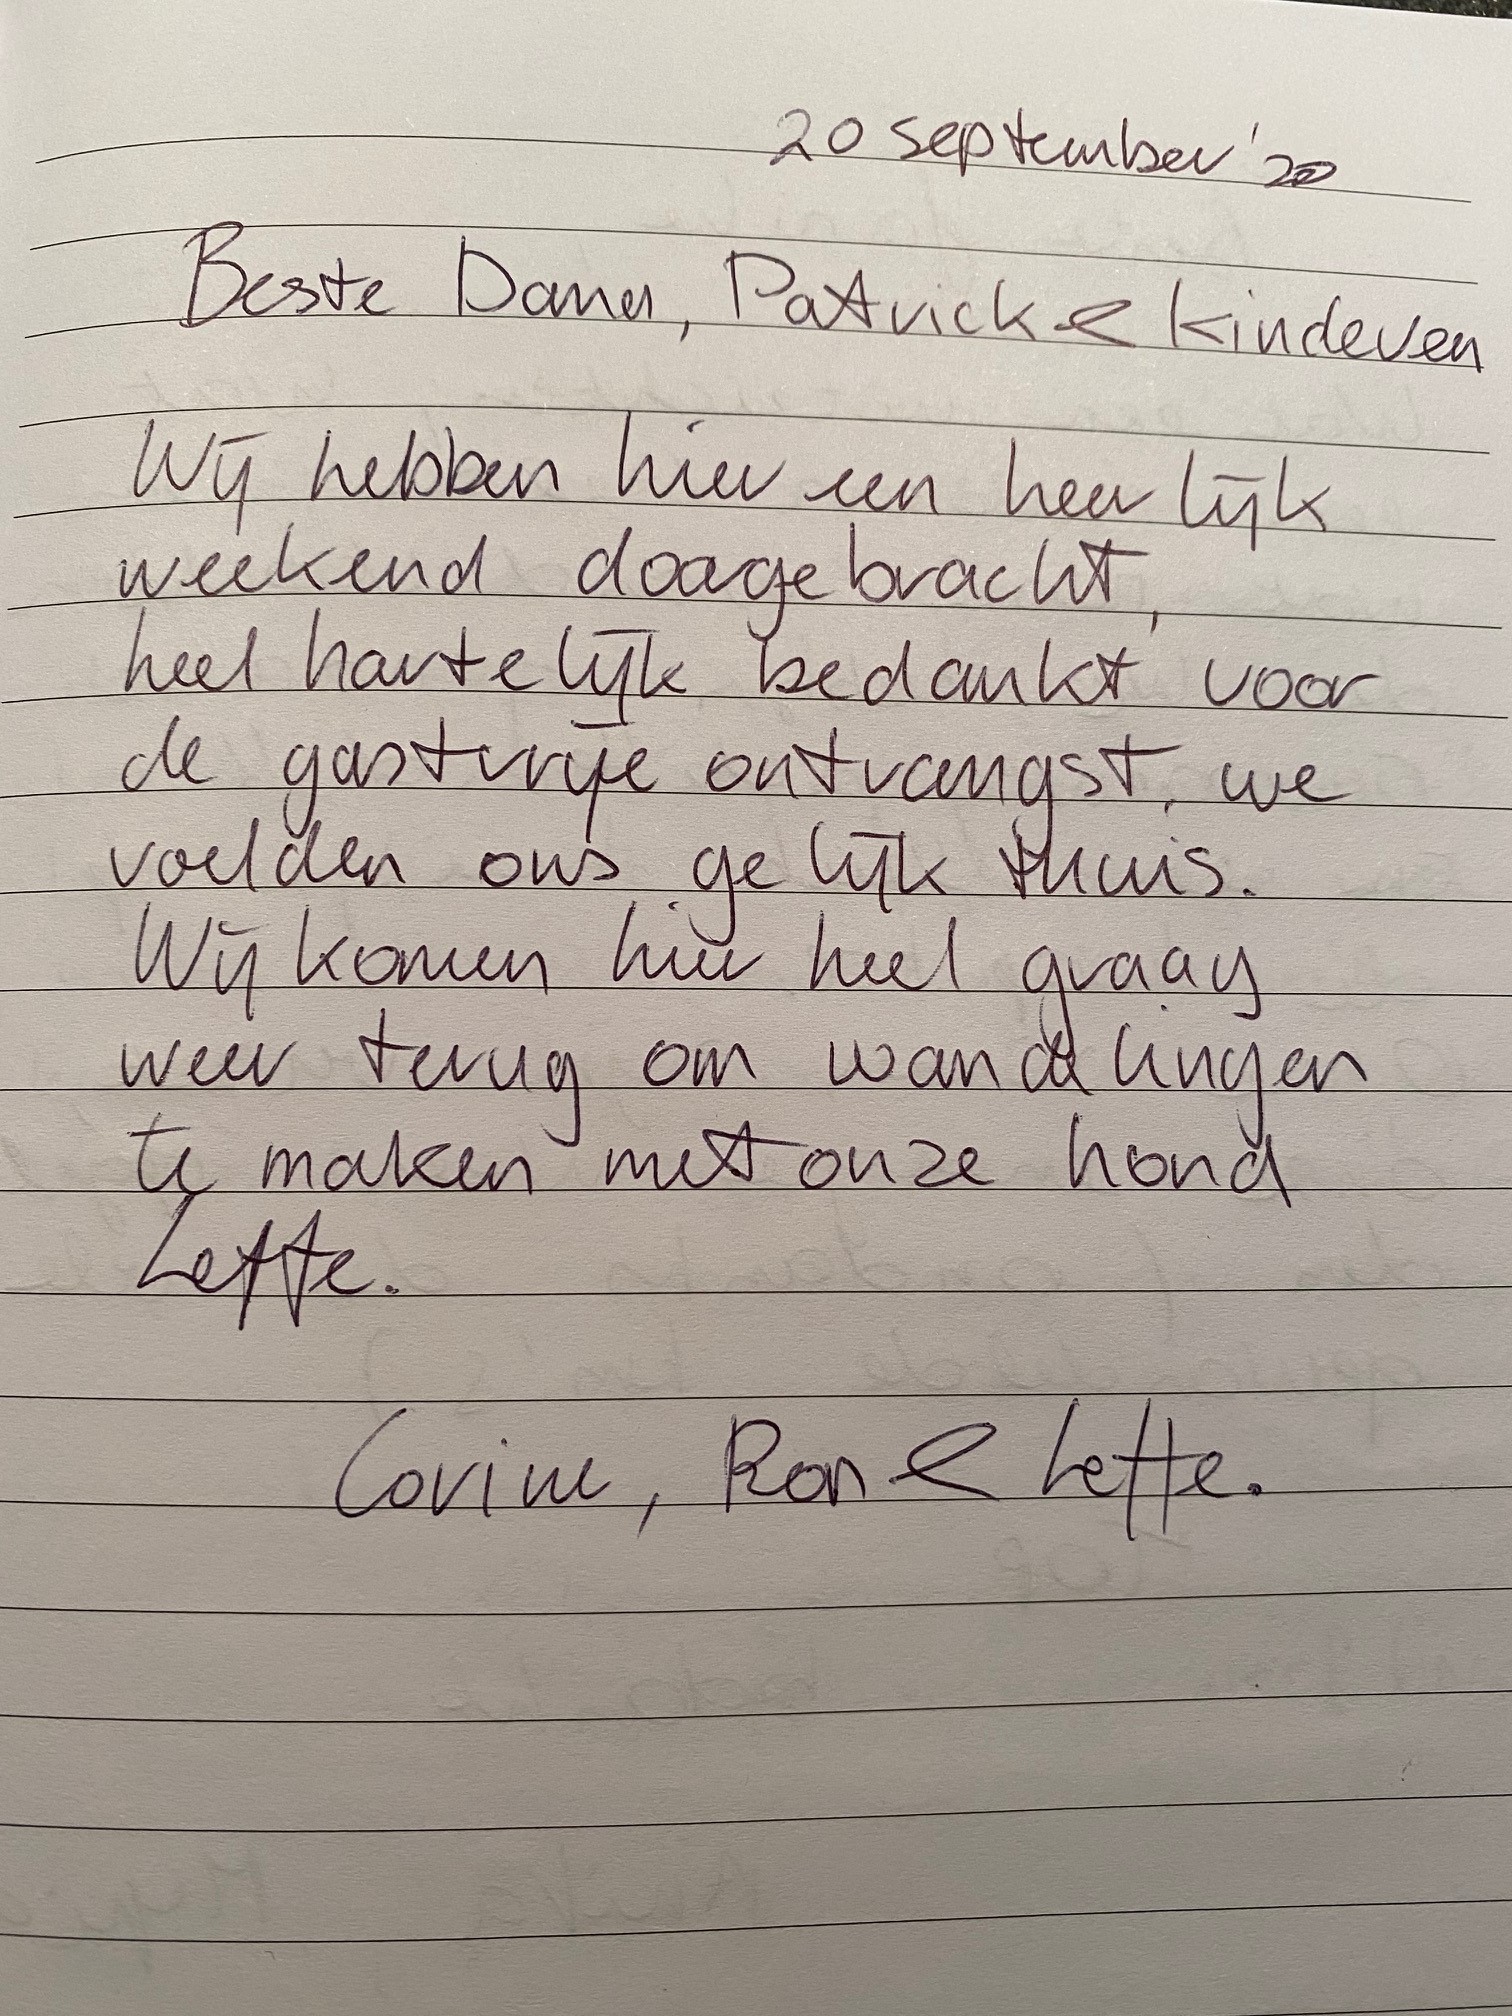 20 september '20
Beste Dana, Patrick & kinderen
Wij hebben hier een heerlijk
weekend doorgebracht,
heel hartelijk bedankt voor
de gastvrije ontvangst, we
voelden ons gelijk thuis.
Wij komen hier heel graag
weer terug om wandelingen
te maken met onze hond
Leffe.
Corine, Ron & Leffe.